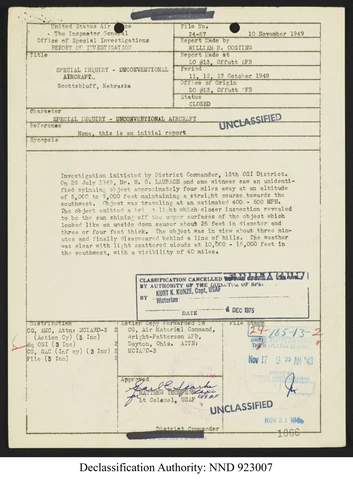 United States Air
The Inspector General
Office of Special Investigations
REPORT OF INVESTIGATION
File No.
24-67
10 November 1949
Title
SPECIAL INQUIRY - UNCONVENTIONAL
AIRCRAFT.
Scottsbluff, Nebraska
Report Made by
WILLIAM B.
Report Made at
DO #13, Offutt AFB
Period
11, 12, 17 October 1949
Office of Origin
DO #13, Offutt AFB
Status
CLOSED
Character
SPECIAL INQUIRY - UNCONVENTIONAL AIRCRAFT
UNCLASSIFIED
Reference
None, this is an initial report
Synopsis
Investigation initiated by District Commander, 13th OSI District.
On 26 July 1949, Dr. H. G. and one witness saw an unidenti-
fied spinning object approximately four miles away at an altitude
of 5,000 to 7,000 feet maintaining a straight course towards the
southwest. Object was traveling at an estimated 400 - 500 MPH.
The object emitted a light which closer inspection revealed
to be the sun shining off the upper surfaces of the object which
looked like an upside down saucer about 25 feet in diameter and
three or four feet thick. The object was in view about three min-
utes and finally disappeared behind a line of hills. The weather
was clear with light scattered clouds at 10,000 - 15,000 feet in
the southwest, with a visibility of 40 miles.
CLASSIFICATION CANCELLED
BY AUTHORITY OF THE DIRECTOR OF
BY KURT K. KUNZE, Capt, USAF
Historian
DATE 4 DEC 1975
Distribution
CG, AMC, Attn: MCIAXO-3 2
(Action Cy) (3 Inc)
Hq OSI (3 Inc) 2
CG, SAC (Inf cy) (3 Inc)
File (3 Inc) 2
Action Copy Forwarded to
CG, Air Materiel Command,
Wright-Patterson AFB,
Dayton, Ohio. ATTN:
MCIAXO-3
File Stamp
24-185-13-2
Nov 17
Approved
Lt Colonel, USAF
District Commander
UNCLASSIFIED
NOV 21
Declassification Authority: NND 923007